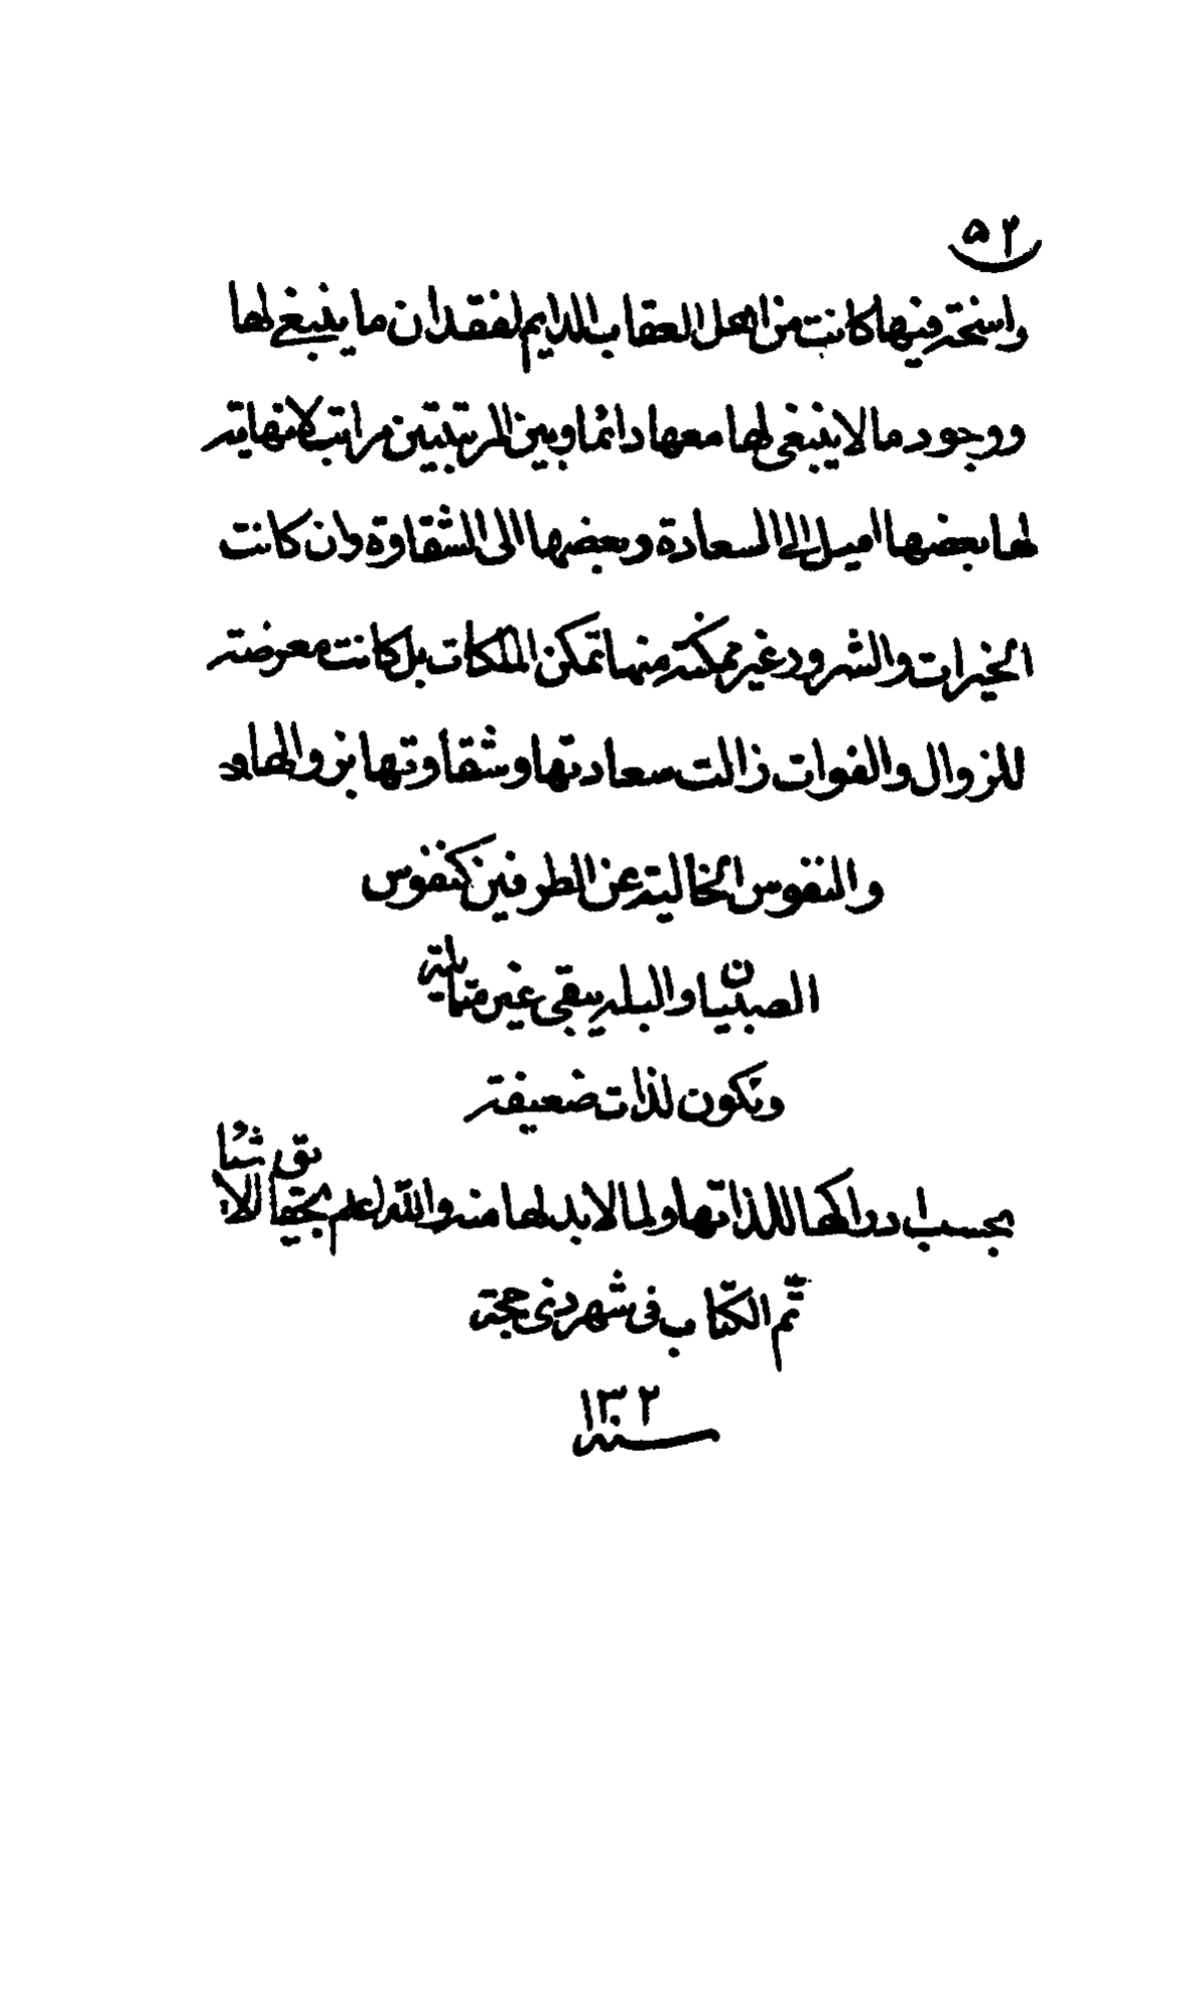 ٥٢
راسخة فيها كانت من اهل العقاب الدايم لفقدان ما ينبغى لها
ووجود ما لا ينبغى لها معها دائما وبين المرتبتين مراتب لا نهاية
لها بعضها اميل الى السعادة وبعضها الى الشقاوة وان كانت
الخيرات والشرور غير ممكنة منها تمكن الملكات بل كانت معرضة
للزوال والفوات زالت سعادتها وشقاوتها بزوالها
والنفوس الخالية عن الطرفين كنفوس
الصبيان والبله يبقى غير متالمة
وتكون لذات ضعيفة
بحسب ادراكها للذاتها ولما لابد لها منه والله اعلم بحقايق الاشيا
تم الكتاب فى شهر ذى حجة
سنه ١٣٠٢